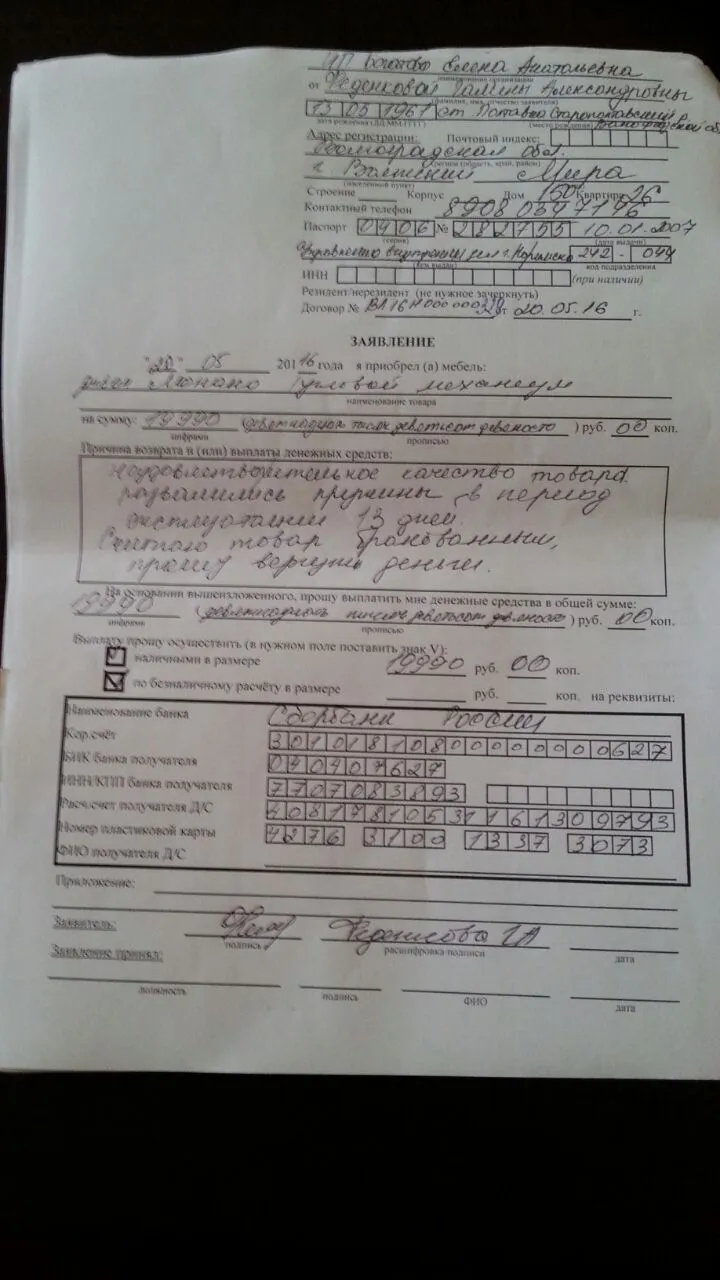 ИП Богатова Елена Анатольевна
наименование организации
от Феденковой Галины Александровны
фамилия, имя, отчество заявителя)
13 05 1961 ст. Полтавка Старополтавский р.
дата рождения (ДД.ММ.ГГГГ) (место рождения)
Адрес регистрации: Почтовый индекс:
Волгоградская обл.
(регион (область, край, район)
г. Мира
(населенный пункт)
Строение Корпус Дом 150 Квартира 26
Контактный телефон
Паспорт 0406 № 282755 10.01.2007
(серия) (дата выдачи)
Управлением внутренних дел г. Норильска 242 - 044
(кем выдан) код подразделения
ИНН (при наличии)
Резидент/нерезидент (не нужное зачеркнуть)
Договор № от 20.05.16 г.
ЗАЯВЛЕНИЕ
"20" 05 20116 года я приобрел (а) мебель:
диван угловой механизм
наименование товара
на сумму: 19990 (девятнадцать тысяч девятьсот девяносто) руб. 00 коп.
цифрами прописью
Причина возврата и (или) выплаты денежных средств:
Неудовлетворительное качество товара.
развалились пружины в период
эксплуатации 13 дней.
Считаю товар бракованным,
прошу вернуть деньги.
На основании вышеизложенного, прошу выплатить мне денежные средства в общей сумме:
19990 (девятнадцать тысяч девятьсот девяносто) руб. 00 коп.
цифрами прописью
Выплату прошу осуществить (в нужном поле поставить знак V):
наличными в размере 19990 руб. 00 коп.
V по безналичному расчёту в размере руб. коп. на реквизиты:
Наименование банка Сбербанк России
Кор.счёт 30101810800000000627
БИК банка получателя 040407627
ИНН/КПП банка получателя 7707083893
Расч.счет получателя Д/С 40817810531161309793
Номер пластиковой карты 4276 3100 1337 3073
ФИО получателя Д/С
Приложение:
Заявитель: Феденкова ГА
подпись расшифровка подписи дата
Заявление принял:
должность подпись ФИО дата